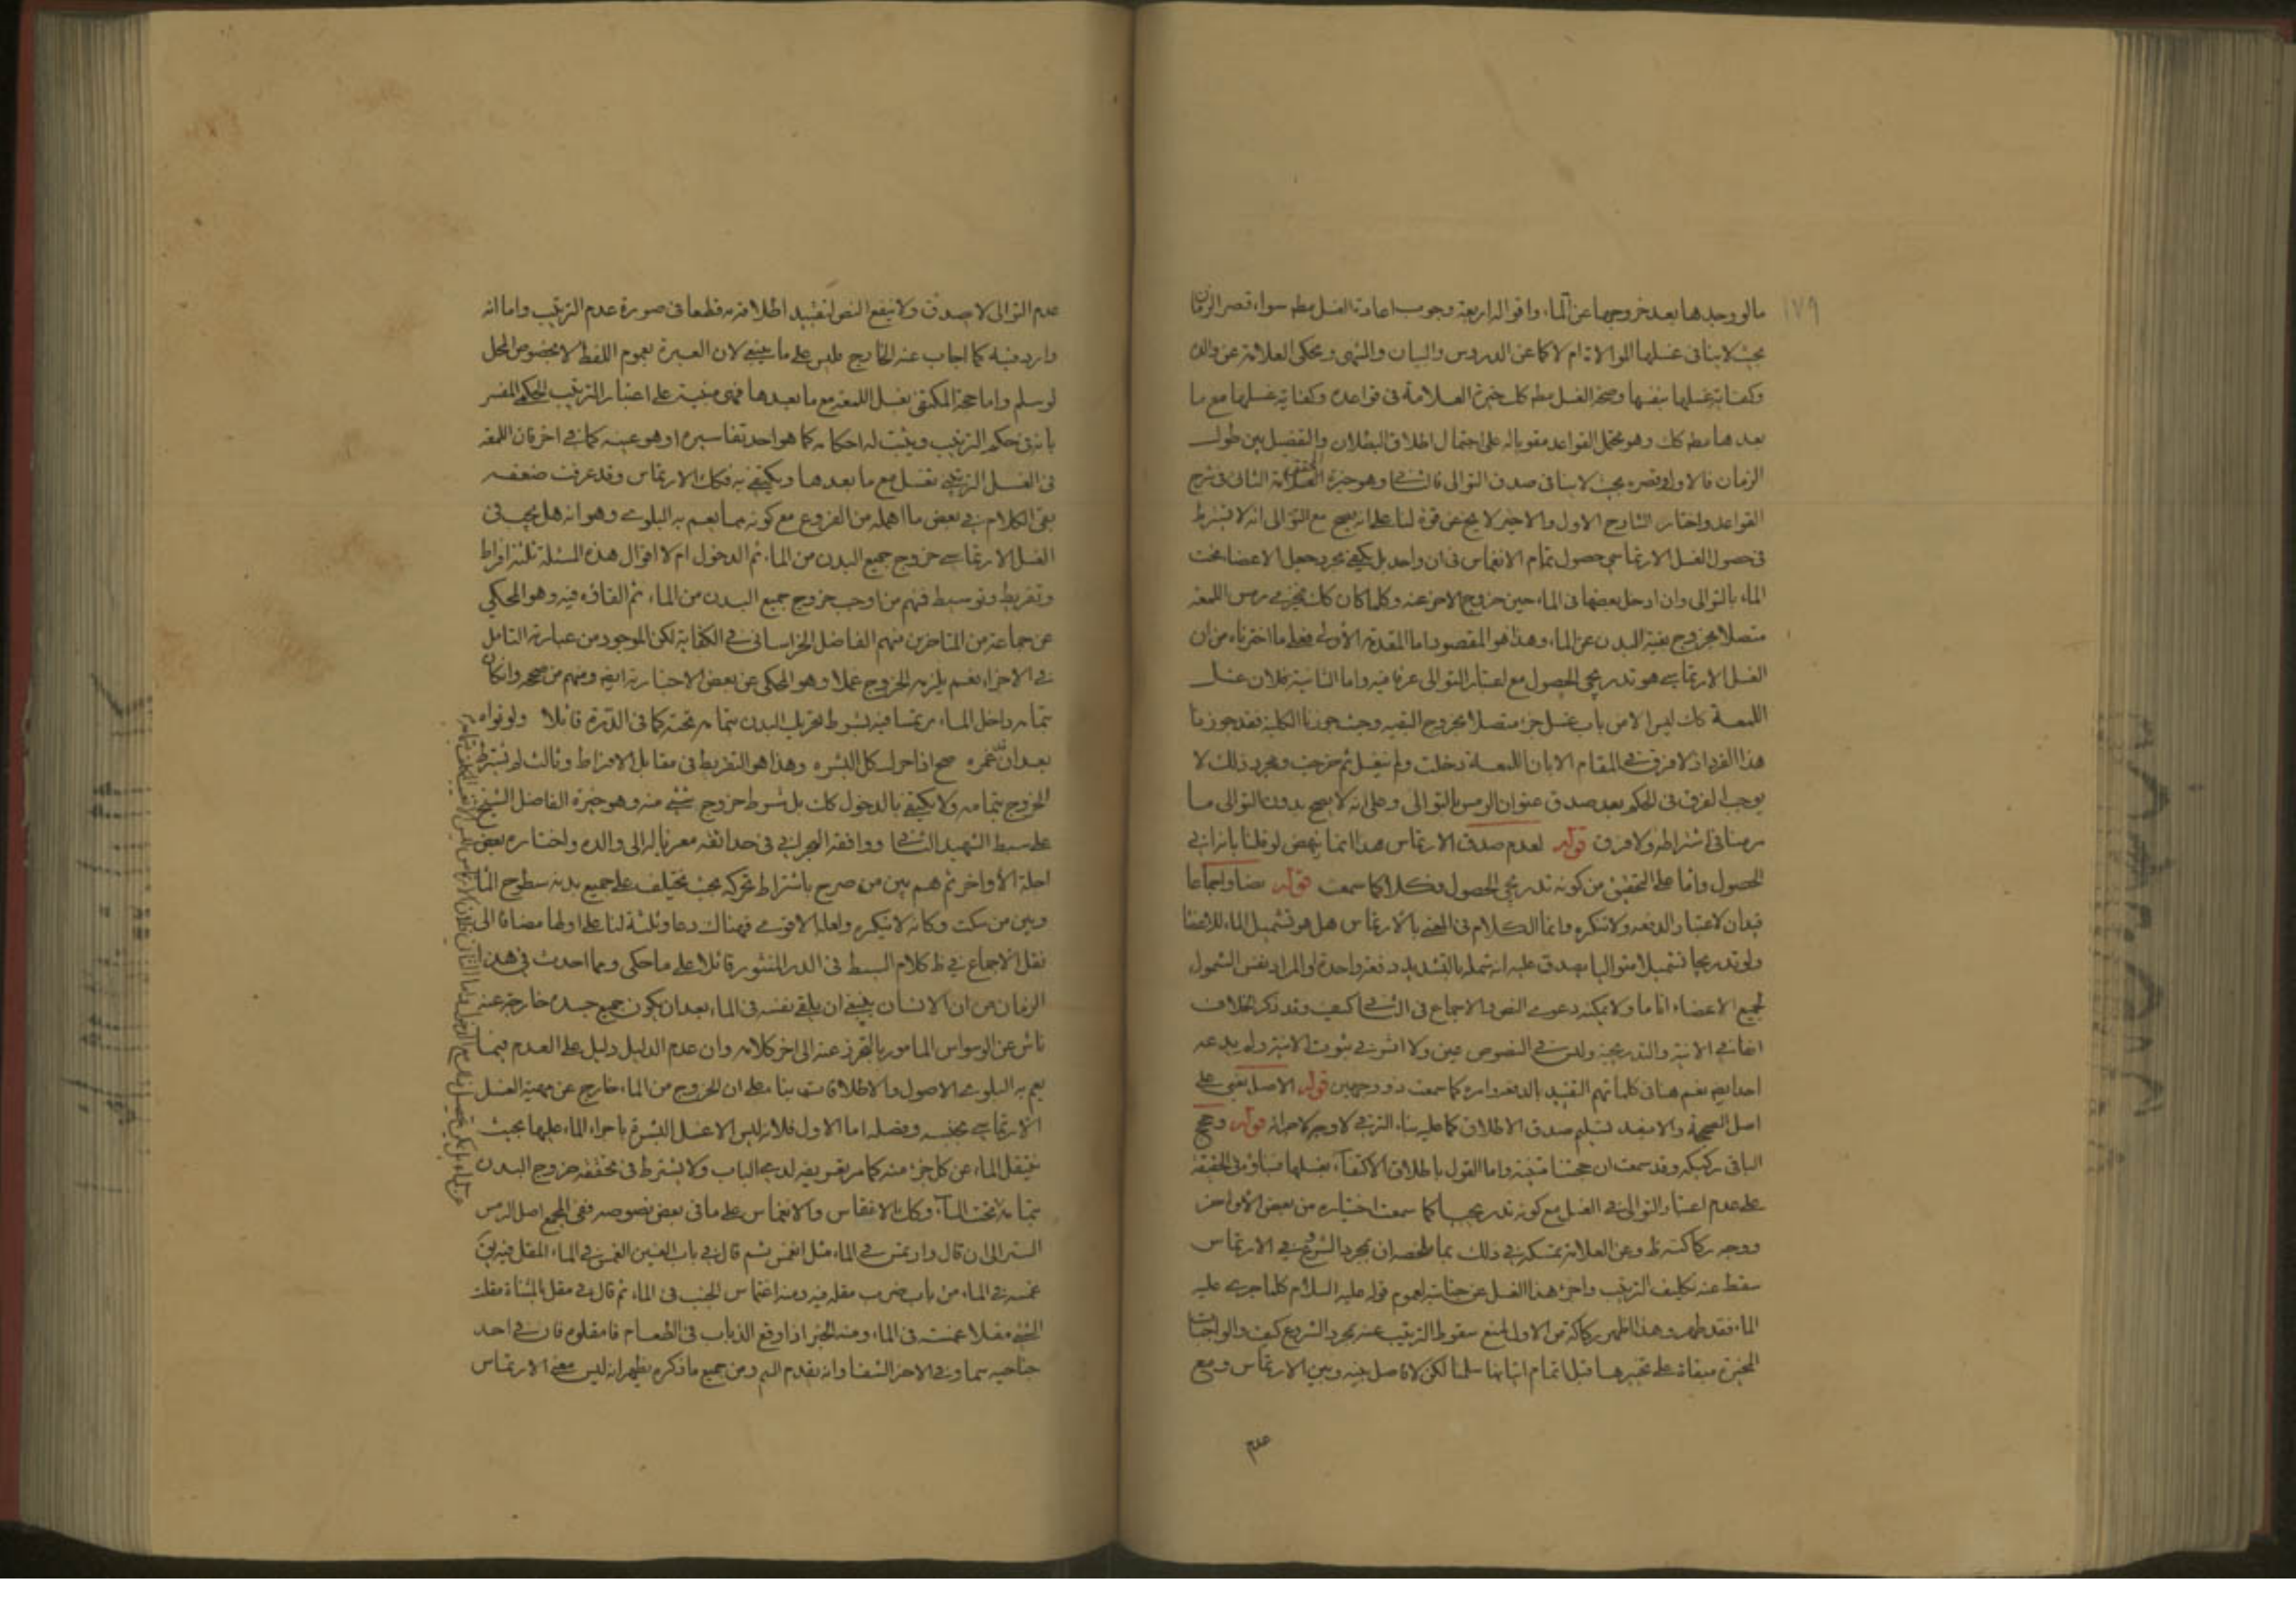 ١٧٩
مالو وجدها بعد خروجها عن الماء واقواله اربعة وجوب اعادة الغسل مطم سواء قصر الزمان
بحيث لا ينافي غسلها الموالاة ام لا كما عن الدروس والبيان و يحكى العلامة عن والده
وكفاية غسلها بنفسها وصحة الغسل مطم كك خيرة العلامة فى قواعده وكفاية غسلها مع ما
بعدها مطم كك وهو محتمل القواعد مقويا له على احتمال اطلاق البطلان والتفصيل بين طول
الزمان فالاول وقصره بحيث لا ينافى صدق التوالى فالثانى وهو خيرة المحقق الثانى فى شرح
القواعد واختار الشارح الاول والاخير لا يخ عن قوة لنا على انه يصح مع التوالى انه لا يشترط
فى حصول الغسل الارتماسي حصول تمام الانغماس فى ان واحد بل يكفى مجرد جعل الاعضاء تحت
الماء بالتوالى وان ادخل بعضها فى الماء حين خروج الاخر عنه وكلما كان كك يجزى رمس اللمعة
متصلا بخروج بقية البدن عن الماء وهذا هو المقصود اما المقدمة الأولى فعلى ما اخترناه من ان
الغسل الارتماسي هو تدريجى الحصول مع اعتبار التوالى عرفا فيه واما الثانية فلان غسل
اللمعة كك ليس الا من باب غسل جزء متصلا بخروج البقيه وحيث جوزنا الكلية فقد جوزنا
هذا الفرد اذ لا فرق فى المقام الا بان اللمعة دخلت ولم تغسل ثم خرجت ومجرد ذلك لا
يوجب الفرق فى الحكم بعد صدق عنوان الرمس بالتوالى وعلى انه لا يصح بدون التوالى ما
مر منا فى اشتراطه ولا فرق قوله لعدم صدق الارتماس هذا انما ينهض لو قلنا بانه انى
الحصول واما على التحقيق من كونه تدريجى الحصول فكلا كما سمعت قوله نصا واجماعا
قيدان لاعتبار الدفعه ولا ننكره وانما الكلام فى المعنى بالارتماس هل هو تشميل الماء للاعضا
ولو تدريجا تشميلا متواليا يصدق عليه انه شمله بالتشديد دفعة واحدة او المراد نفس الشمول
لجميع الاعضاء انا ما ولا يمكنه دعوى النص والاجماع فى الثانى كيف وقد ذكر الخلاف
انفا فى الانية والتدريجية وليس فى النصوص عين ولا اثر فى ثبوت الانية ولم يدعه
احد ايضا نعم هنا فى كلماتهم التقييد بالدفعه وامره كما سمعت ذو وجهين قوله الاصل يعنى على
اصل الصحة والا فبعد تسليم صدق الاطلاق كما عليه بناء الترتبي لا وجه لاجرائه قوله وحجج
الباقى ركيكه وقد سمعت ان حجتنا متينة واما القول باطلاق الاكتفاء بغسلها فبناؤه فى الحقيقة
على عدم اعتبار التوالى فى الغسل مع كونه تدريجيا كما سمعت اختياره من بعض الأواخر
ووجه ركاكته ظ وعن العلامة تمسكه فى ذلك بما ملخصه ان بمجرد الشروع فى الارتماس
سقط عنه تكليف الترتيب واجزء هذا الغسل عن جنابته لعموم قوله عليه السلام كلما جرى عليه
الماء فقد طهر وهذا اظهر ركاكة من الاول لمنع سقوط الترتيب عنه بمجرد الشروع كيف والواجبات
المخيرة مبقاة على تخييرها قبل اتمام اتيانها سلمنا لكن لا فاصل بينه وبين الارتماس ومع
عدم
عدم التوالى لا يصدق ولا ينفع النص لتقييد اطلاقه به قطعا فى صورة عدم الترتيب واما انه
وارد فيه كما اجاب عنه الشارح فليس على ما ينبغى لان العبرة بعموم اللفظ لا بخصوص المحل
لو سلم واما حجة المكتفى بغسل اللمعة مع ما بعدها فهى مبنية على اعتبار الترتيب الحكمى المفسر
بانه فى حكم الترتيب ويثبت له احكامه كما هو احد تفاسيره او هو عينه كما فى اخر فان اللمعة
فى الغسل الترتيبى تغسل مع ما بعدها ويكتفى به فكك الارتماس وقد عرفت ضعفه
بقى الكلام فى بعض ما اهمله من الفروع مع كونه مما يعم به البلوى وهو انه هل يجب فى
الغسل الارتماسى خروج جميع البدن من الماء ثم الدخول ام لا اقوال هذه المسئلة ثلثة افراط
وتفريط وتوسيط فمنهم من اوجب خروج جميع البدن من الماء ثم القاؤه فيه وهو المحكى
عن جماعة من المتاخرين منهم الفاضل الخراسانى فى الكفاية لكن الموجود من عبارته التامل
فى الاجزاء نعم يلزمه الخروج عملا وهو المحكى عن بعض الاخبارية ايضا ومنهم من صححه وان كان
بتمامه داخل الماء مرتمسا فيه بشرط تحريك البدن بتمامه تحته كما فى الدرة قائلا ولو نواه
بعد ان غمره صح اذا حرك كل البشره وهذا هو التفريط فى مقابل الافراط وثالث لم يشترط
الخروج بتمامه ولا يكتفى بالدخول كك بل شرط خروج شئ منه وهو خيرة الفاضل الشيخ
على سبط الشهيد الثانى ووافقه البحرانى فى حدائقه معزيا له الى والده واختاره بعض
اجلة الأواخر ثم هم بين من صرح باشتراط تحركه بحيث يختلف على جميع بدنه سطوح الماء
وبين من سكت وكانه لا ينكره ولعله الاقوى فهناك دعاو ثلثة لنا على اولها مضافا الى
نقل الاجماع فى ظ كلام السبط فى الدر المنثور قائلا على ما حكى ومما احدث فى هذا
الزمان من ان الانسان ينبغى ان يلقى نفسه فى الماء بعد ان يكون جميع جسده خارجة عنه
ناش عن الوسواس المامور بالتحرز عنه الى اخر كلامه وان عدم الدليل دليل على العدم فيما
يعم به البلوى الاصول والاطلاقات بناء على ان الخروج من الماء خارج عن مهية الغسل
الارتماسى بجنسه وفصله اما الاول فلانه ليس الا غسل البشرة باجراء الماء عليها بحيث
ينتقل الماء عن كل جزء منه كما مر تعريفه لدى الباب ولا يشترط فى تحققه خروج البدن
بتمامه تحت الماء وكك الانغماس والانغماس على ما فى بعض نصوصه ففى المجمع اصل الرمس
الستر الى ان قال وارتمس فى الماء مثل انغمس ثم قال فى باب الغين الغمس فى الماء المقل فيه يق
غمسه فى الماء من باب ضرب مقله فيه ومنه اغتماس الجنب فى الماء ثم قال فى مقل بالمثناة مقلت
الشئ مقلا غمسته فى الماء ومنه الخبر اذا وقع الذباب فى الطعام فامقلوه فان فى احد
جناحيه سما وفى الاخر الشفا وانه يقدم السم ومن جميع ما ذكره يظهر انه ليس معنى الارتماس